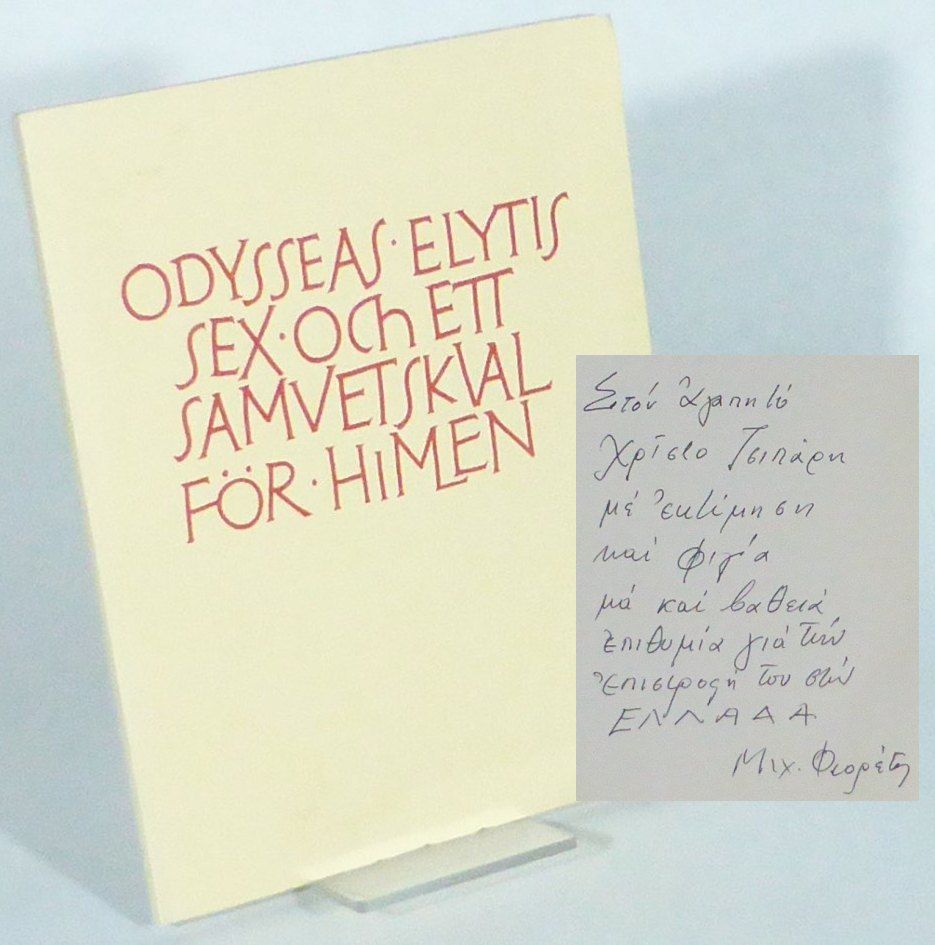 ODYSSEAS · ELYTIS
SEX · OCH ETT
SAMVETSKVAL
FÖR · HIMEN
Στόν ἀγαπητό
Χρίστο Τσιπάρη
μέ ἐκτίμηση
καί φιλία
μά καί βαθειά
ἐπιθυμία γιά τήν
ἐπιστροφή του στήν
ΕΛΛΑΔΑ
Μιχ.